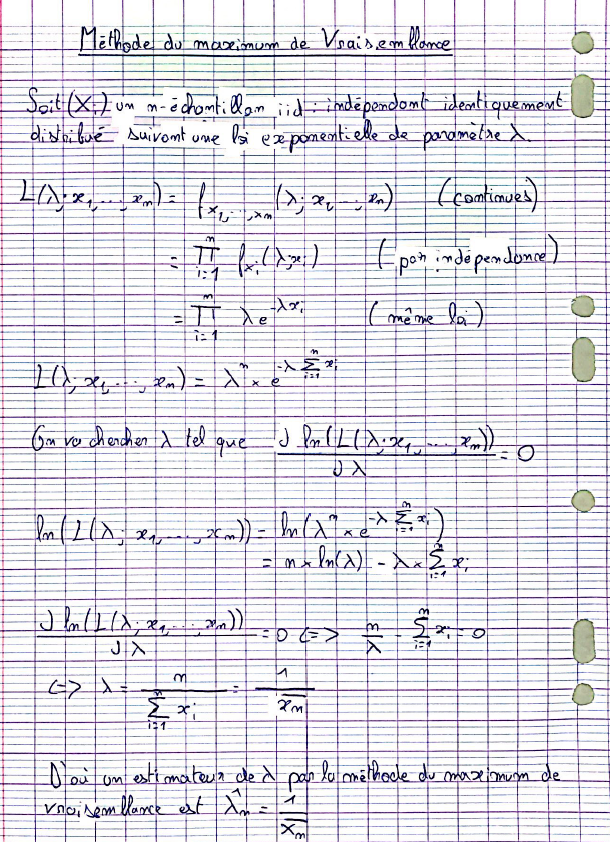 Méthode du maximum de Vraisemblance
Soit (Xi) un n-échantillon iid : indépendant identiquement
distribué suivant une loi exponentielle de paramètre λ.
L(λ; x1, ..., xn) = f_{X1, ..., Xn}(λ; x1, ..., xn) (continues)
= ∏_{i=1}^{n} f_{Xi}(λ; xi) (par indépendance)
= ∏_{i=1}^{n} λ e^{-λxi} (même loi)
L(λ; x1, ..., xn) = λ^n × e^{-λ ∑_{i=1}^{n} xi}
On va chercher λ tel que ∂ ln(L(λ; x1, ..., xn)) / ∂λ = 0
ln(L(λ; x1, ..., xn)) = ln(λ^n × e^{-λ ∑_{i=1}^{n} xi})
= n × ln(λ) - λ × ∑_{i=1}^{n} xi
∂ ln(L(λ; x1, ..., xn)) / ∂λ = 0 <=> n/λ - ∑_{i=1}^{n} xi = 0
<=> λ = n / ∑_{i=1}^{n} xi = 1 / x̄n
D'où un estimateur de λ par la méthode du maximum de
vraisemblance est λ̂n = 1 / X̄n